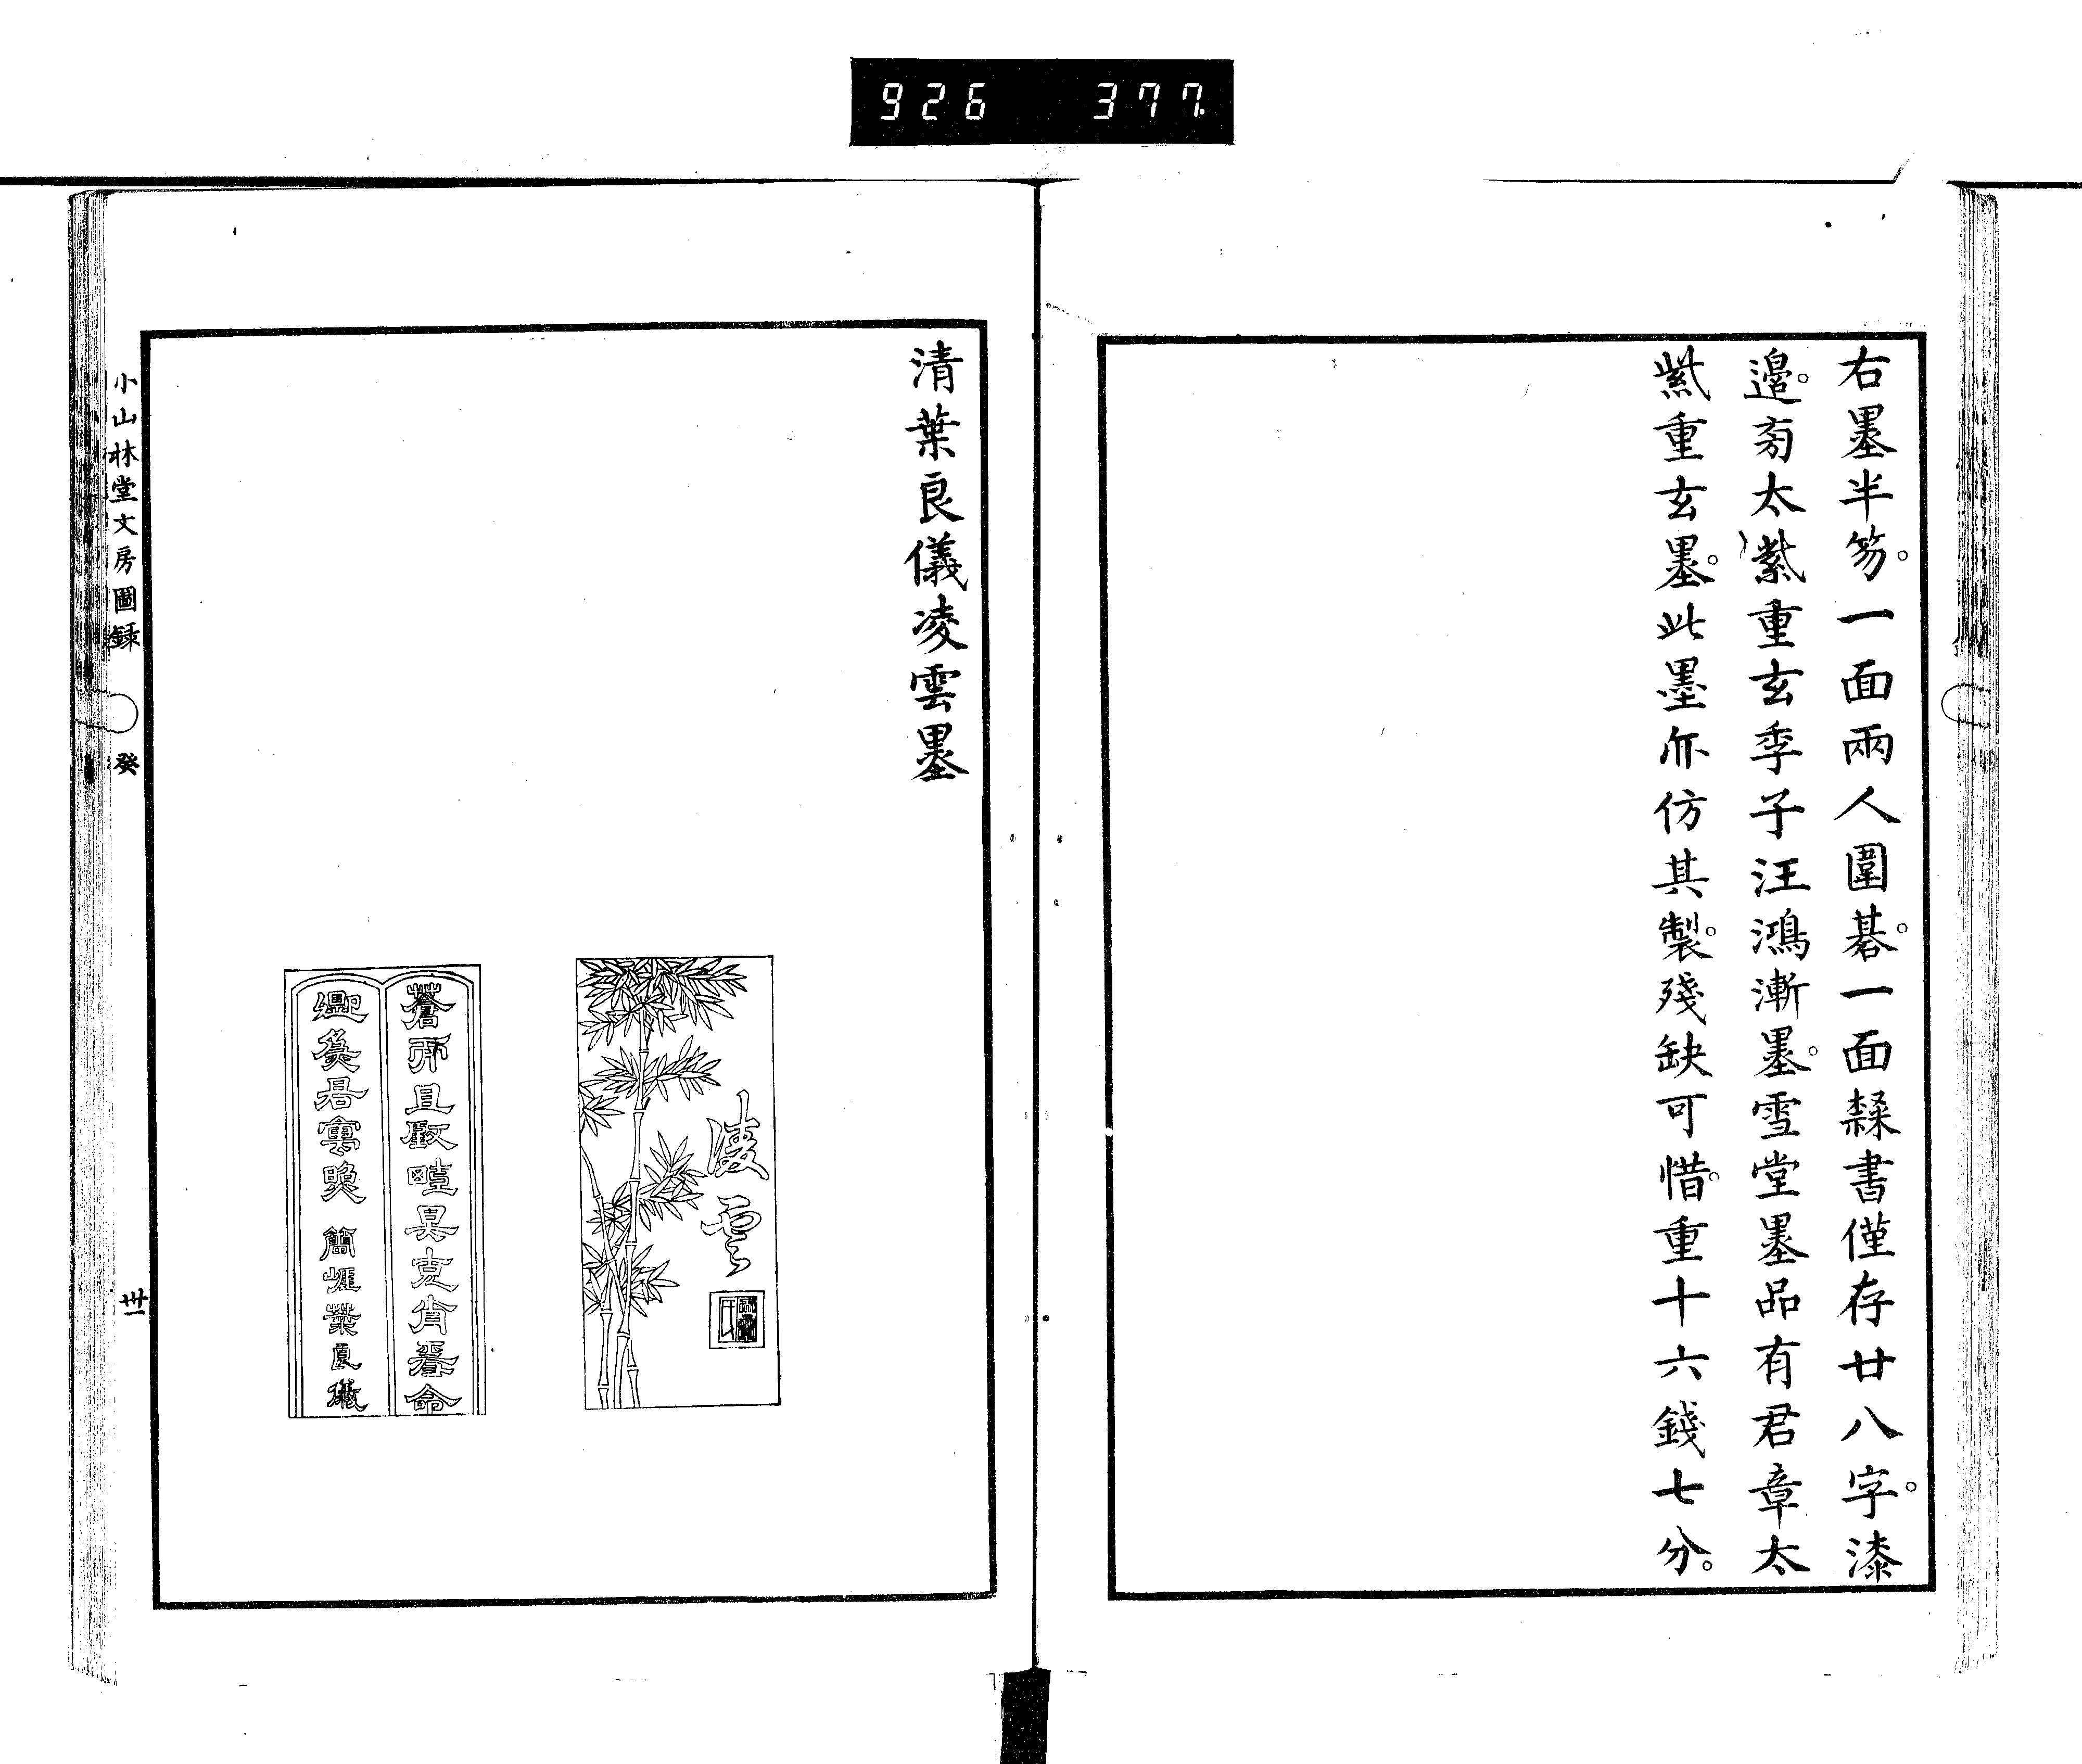 926 377
右墨半笏。一面兩人圍碁。一面隸書僅存廿八字。漆
邊。旁太紫重玄季子汪鴻漸墨。雪堂墨品有君章太
紫重玄墨。此墨亦仿其製。殘缺可惜。重十六錢七分。
清葉良儀凌雲墨
凌雲
簡崖葉良儀
小山林堂文房圖録 癸 卅一